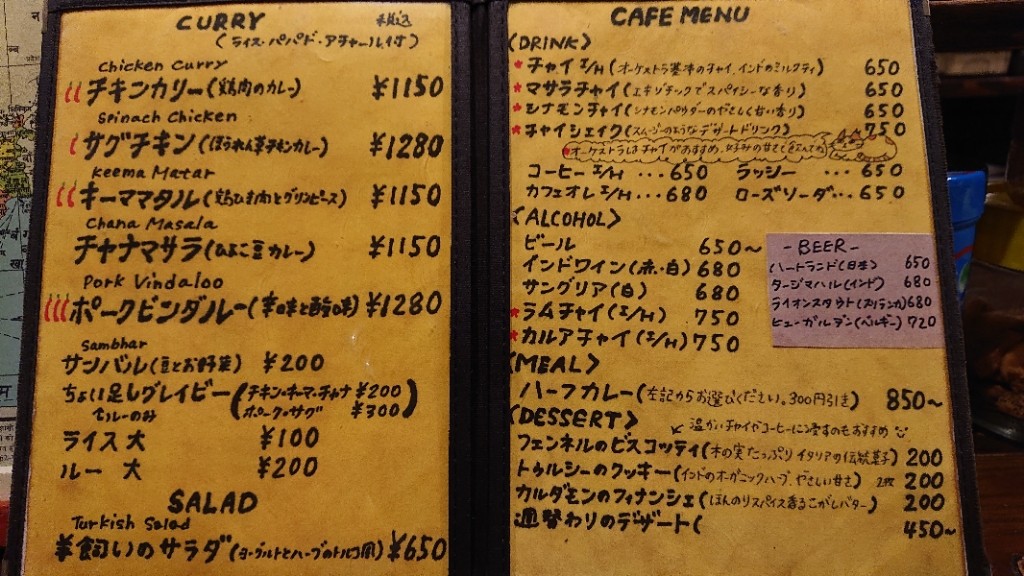 CURRY
税込
(ライス・パパド・アチャール付)
Chicken Curry
チキンカリー(鶏肉のカレー) ¥1150
Spinach Chicken
サグチキン(ほうれん草チキンカレー) ¥1280
Keema Matar
キーママタル(鶏ひき肉とグリンピース) ¥1150
Chana Masala
チャナマサラ(ひよこ豆カレー) ¥1150
Pork Vindaloo
ポークビンダルー(辛味と酸味) ¥1280
Sambhar
サンバル(豆とお野菜) ¥200
ちょい足しグレイビー(チキン・キーマ・チャナ ¥200
ルーのみ ポーク・サグ ¥300)
ライス 大 ¥100
ルー 大 ¥200
SALAD
Turkish Salad
羊飼いのサラダ(ヨーグルトとハーブのトルコ風) ¥650
CAFE MENU
(DRINK)
*チャイ I/H (オーケストラ基本のチャイ、インドのミルクティ) 650
*マサラチャイ(エキゾチックでスパイシーな香り) 650
*シナモンチャイ(シナモンパウダーのやさしく甘い香り) 650
*チャイシェイク(スムージーのようなデザートドリンク) 750
*オーケストラはチャイがおすすめ、お好みの甘さで飲んでね
コーヒー I/H ... 650 ラッシー ... 650
カフェオレ I/H ... 680 ローズソーダ... 650
(ALCOHOL)
ビール 650~
インドワイン(赤・白) 680
サングリア(白) 680
*ラムチャイ(I/H) 750
*カルアチャイ(I/H) 750
-BEER-
ハートランド(日本) 650
タージマハル(インド) 680
ライオンスタウト(スリランカ) 680
ヒューガルデン(ベルギー) 720
(MEAL)
ハーフカレー(左記からお選びください。300円引き) 850~
(DESSERT)
↙ 温かいチャイやコーヒーに浸すのもおすすめ
フェンネルのビスコッティ(木の実たっぷり イタリアの伝統菓子) 200
トゥルシーのクッキー(インドのオーガニックハーブ、やさしい甘さ) 2枚 200
カルダモンのフィナンシェ(ほんのりスパイス香るこがしバター) 200
週替わりのデザート( 450~